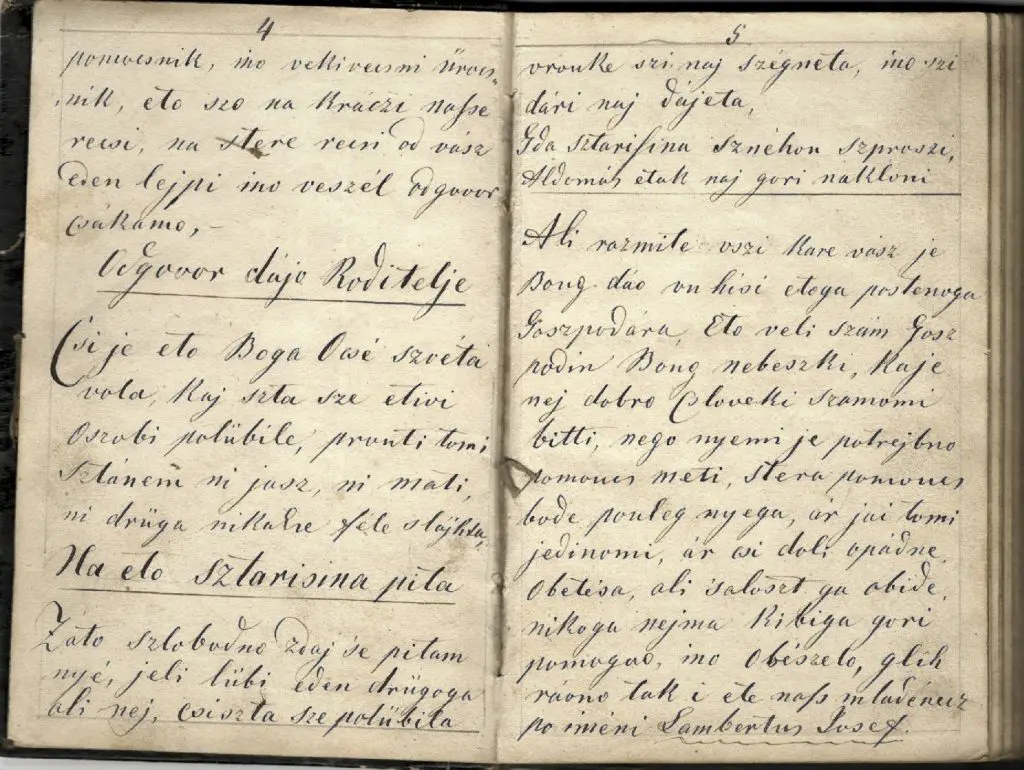 4
pomocsnik, ino vekivecsni üröcs,,
nik, eto szo na kráczi nasse
recsi, na stere recsi od vász
eden lejpi ino veszél odgovor
csákamo, –
Odgovor dájo Roditelje
Csi je eto Boga Ocsé szvéta
vola, kaj szta sze etivi
Oszobi polübile, prouti tomi
Sztánem ni jasz, ni mati,
ni drüga nikakse féle
Na eto sztarisina pita
Záto szlobodno zdaj 'se pitam
nyé, jeli lübi eden drügoga
ali nej, csiszta sze polübila
5
vrouke szi naj szégneta, ino szi
dári naj dájeta,
Gda sztarisina sznéhou szproszi,
Áldomás etak naj gori nakloni
Ali razmite vszi kare vász je
Boug dáo vu hisi etoga postenoga
Goszpodára, Eto veli szám Gosz
podin Boug nebeszki, Kaje
nej dobro Csloveki szamomi
bitti, nego nyemi je potrejbno
pomoucs meti, stera pomoucs
bode pouleg nyega, ár jai tomi
jedinomi, ár csi doli opádne,
Obetésa, ali 'saloszt ga obide,
nikoga nejma kibiga gori
pomogao, ino Obészelo, glih
ráono tak i ete nass mladénecz
po iméni Lambertus Josef.